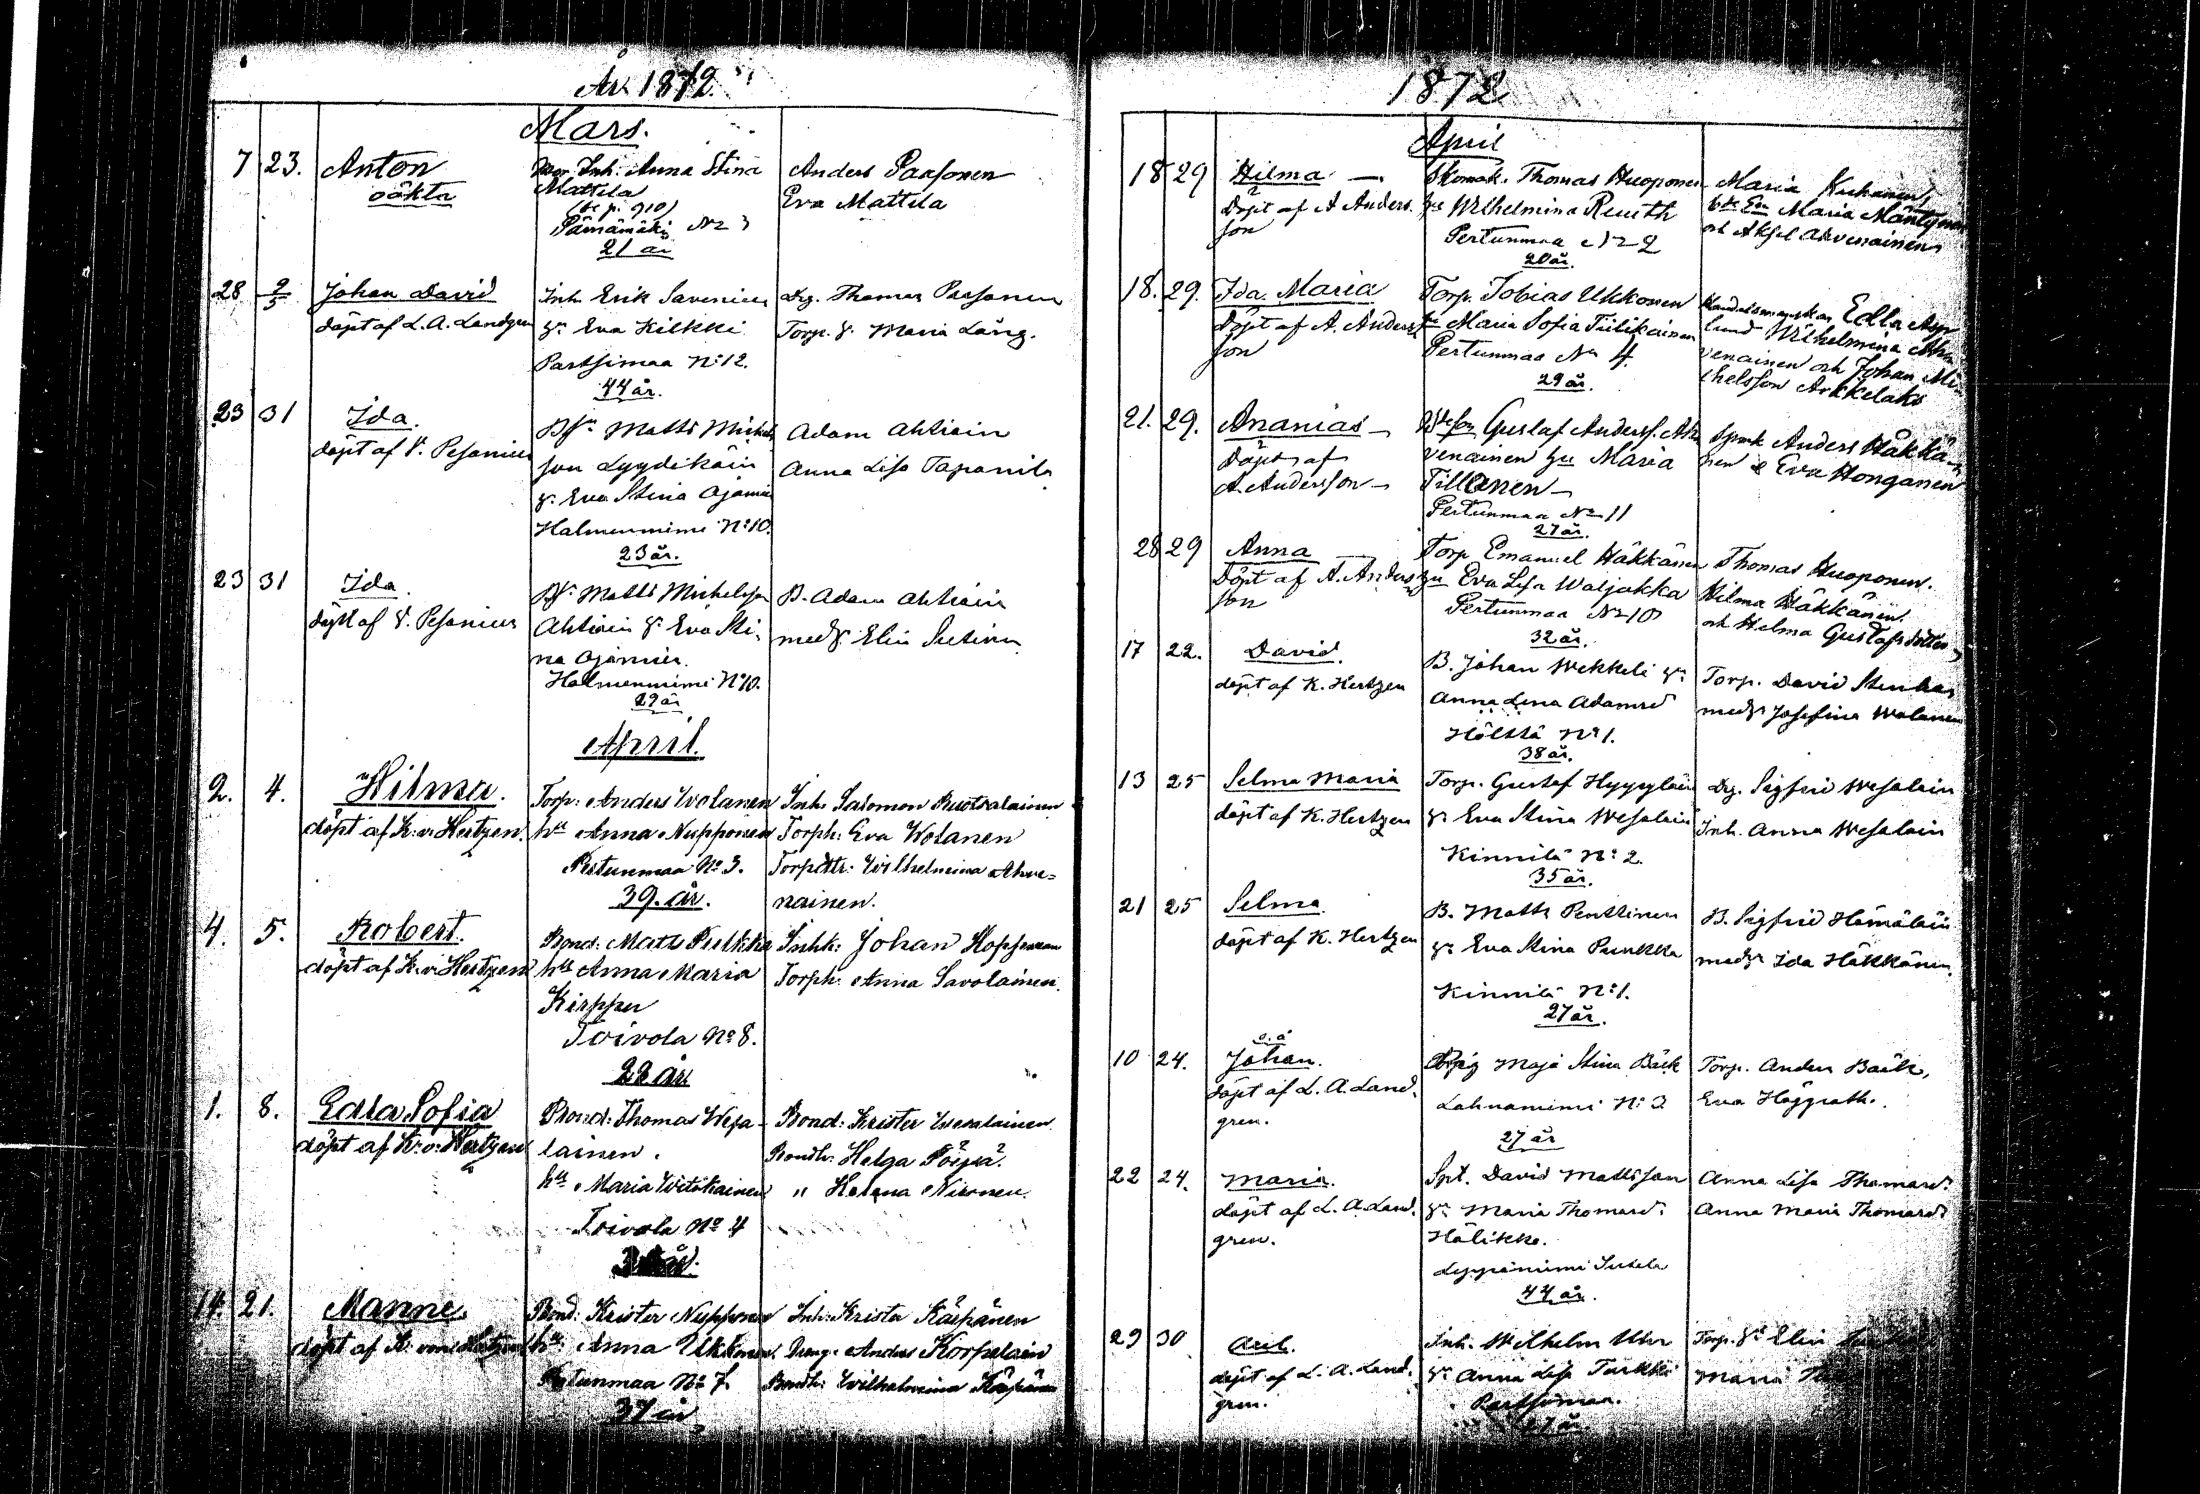 År 1872.
Mars.
7 23. Anton
oäkta
Mor Inh. Anna Stina
Mattila
(se p. 910)
Pärnämäki No 3
21 år
Anders Paasonen
Eva Mattila
28 2/5 Johan David
döpt af L. A. Landgren
Inh. Erik Savenius
Eva Kilkki
Partsimaa No 12.
44 år.
Drg. Thomas Paasonen
Torp. Maria Läng.
23 31 Ida.
döpt af Pesonius
Matts Michels
son Lyydikäin
Eva Stina Ojamies
Halmenniemi No 10.
23 år.
Adam Ahtiain
Anna Lisa Tapanila
23 31 Ida.
döpt af Pesonius
Matts Michelsson
Ahtiain Eva Sti-
na Ojamies.
Halmenniemi No 10.
29 år
B. Adam Ahtiain
med Elin Sutinen
April.
2. 4. Hilma.
döpt af K. v. Hertzen.
Torp: Anders Wolanen
hu Anna Nupponen
Pertunmaa No 3.
39. år.
Inh. Salomon Ruotsalainen
Torph: Eva Wolanen
Torpdttr: Wilhelmina Ahve=
nainen.
4. 5. Robert.
döpt af K. v. Hertzen
Bond: Matts Pulkka
hu Anna Maria
Kirppu
Toivola No 8.
22 år
Inhk: Johan Kopponen
Torph: Anna Savolainen.
1. 8. Edla Sofia
döpt af K. v. Hertzen
Bond: Thomas Wesa-
lainen.
hu Maria Witikainen
Toivola No 4
Bond: Krister Wesalainen
Bondh: Helga Pöyjä.
" Helena Niironen.
14. 21. Manne.
döpt af K. von Hertzen
Bond: Krister Nupponen
hu: Anna Ukkonen.
Pertunmaa No 7.
37 år
Inh: Krister Käspänen
Dreng. Anders Korpelain
Bondh: Wilhelmina Käspänen
1872
April
18 29 Hilma —
Döpt af A Anders
son
Skomak. Thomas Huoponen
hu Wilhelmina Reuth
Pertunmaa No 2
20 år.
Maria Kuhanen,
Maria Mäntynen
och Aksel Ahvenainen
18. 29. Ida Maria
Döpt af A. Anders
son
Torp. Tobias Ukkonen
hu Maria Sofia Tiilikainen
Pertunmaa No 4.
29 år.
Edla Asp
lund Wilhelmina Ah
venainen och Johan Mi
chelsson Arkkelaks
21. 29. Ananias —
Döpt af
A. Andersson —
Gustaf Anderss. Ah
venainen hu Maria
Tillanen —
Pertunmaa No 11
27 år.
Anders Häkkä-
nen & Eva Honganen
28 29 Anna
Döpt af A. Anders
son
Torp Emanuel Häkkänen
hu Eva Lisa Waljakka
Pertunmaa No 10
32 år.
Thomas Huoponen.
Hilma Häkkänen.
och Helma Gustafsdotter
17 22. David.
döpt af K. Hertzen
B. Johan Wekkeli
Anna Lena Adamsd
Hölttä No 1.
38 år.
Torp. David Stenhas
med Josefina Wolanen
13 25 Selma Maria
döpt af K. Hertzen
Torp. Gustaf Hyyryläin
Eva Stina Wesalain
Kinnilä No 2.
35 år.
Drg. Sigfrid Wesalain
Inh. Anna Wesalain
21 25 Selma.
döpt af K. Hertzen
B. Matts Penttinen
Eva Stina Punkka
Kinnilä No 1.
27 år.
B. Sigfrid Hämäläin
med Ida Häkkänen.
10 24. o. ä
Johan.
döpt af L. A. Land-
gren.
Maja Stina Bäck
Lahnaniemi No 3
27 år
Torp. Anders Bäck,
Eva Höggroth.
22 24. Maria.
döpt af L. A. Land.
gren.
Spt. David Mattsson
Maria Thomasd.
Hölikko.
Lyypiniemi Sukela
44 år.
Anna Lisa Thomasd.
Anna Maria Thomasd.
29 30 Axel.
döpt af L. A. Land.
gren.
Inh. Wilhelm
Anna Lisa Turkki
Partsimaa.
27 år.
Torp. Elin
Maria